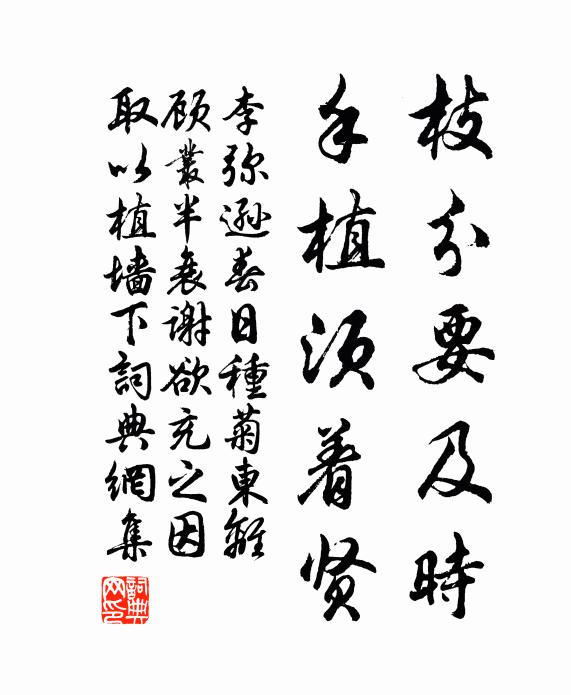 枝分要及時
手植须着贤
李弥遜春日種菊東離
顾叢半衰謝欲充之因
取以植墙下詞典網集
詞典网印